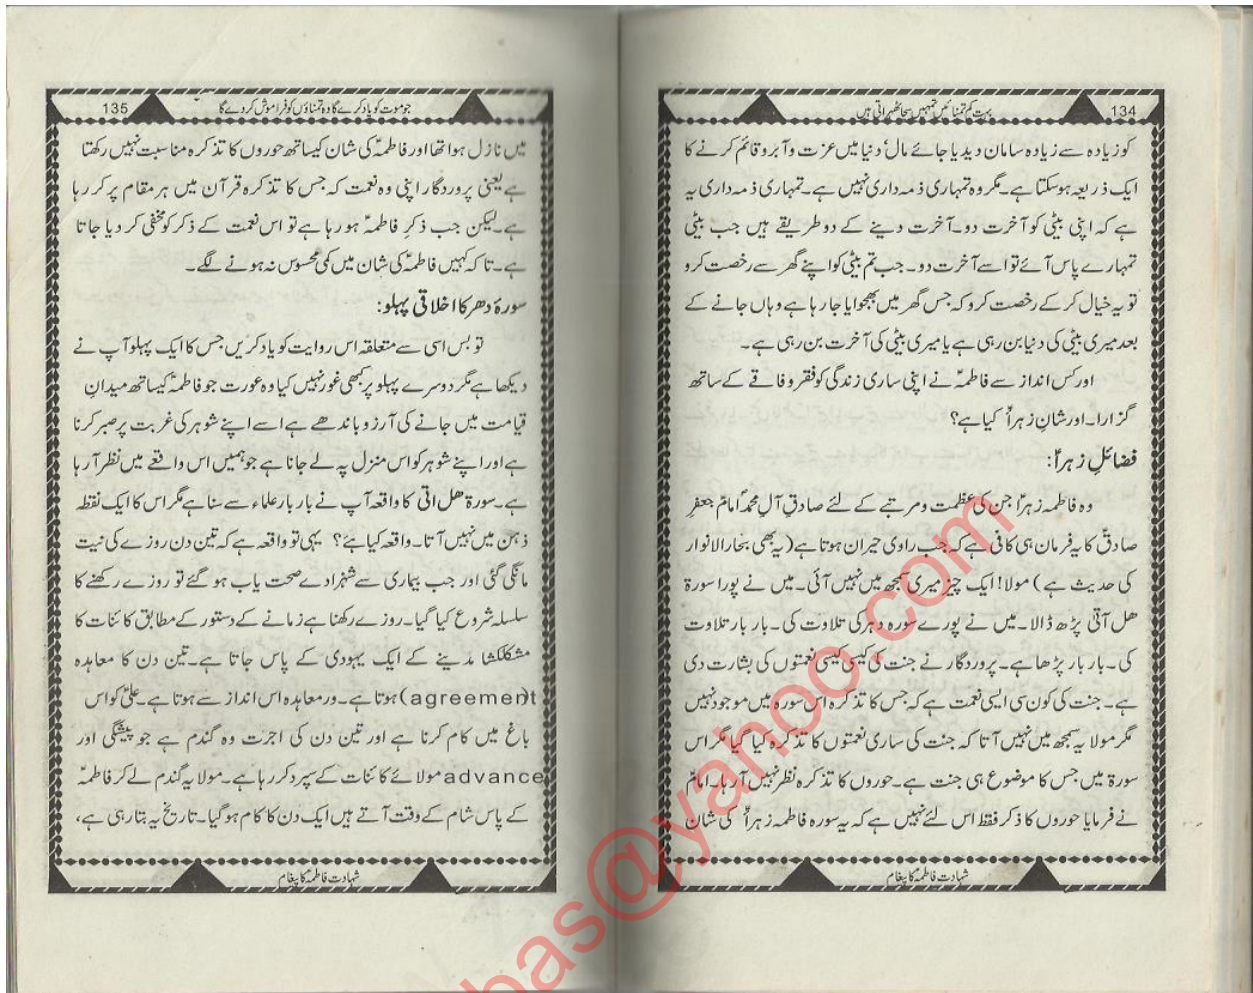 134
بہت کم تمنائیں تمہیں سچا ٹھہراتی ہیں
کو زیادہ سے زیادہ سامان دیدیا جائے مال دنیا میں عزت و آبرو قائم کرنے کا
ایک ذریعہ ہوسکتا ہے۔ مگر وہ تمہاری ذمہ داری نہیں ہے۔ تمہاری ذمہ داری یہ
ہے کہ اپنی بیٹی کو آخرت دو۔ آخرت دینے کے دو طریقے ہیں جب بیٹی
تمہارے پاس آئے تو اسے آخرت دو۔ جب تم بیٹی کو اپنے گھر سے رخصت کرو
تو یہ خیال کر کے رخصت کرو کہ جس گھر میں بھجوایا جا رہا ہے وہاں جانے کے
بعد میری بیٹی کی دنیا بن رہی ہے یا میری بیٹی کی آخرت بن رہی ہے۔
اور کس انداز سے فاطمہؑ نے اپنی ساری زندگی کو فقر و فاقے کے ساتھ
گزارا۔ اور شانِ زہراؑ کیا ہے؟
فضائلِ زہراؑ:
وہ فاطمہ زہراؑ جن کی عظمت و مرتبے کے لئے صادقِ آلِ محمدؐ امام جعفرِ
صادقؑ کا یہ فرمان ہی کافی ہے کہ جب راوی حیران ہوتا ہے (یہ بھی بحار الانوار
کی حدیث ہے) مولا! ایک چیز میری سمجھ میں نہیں آئی۔ میں نے پورا سورۃ
ھل اتیٰ پڑھ ڈالا۔ میں نے پورے سورہ دہر کی تلاوت کی۔ بار بار تلاوت
کی۔ بار بار پڑھا ہے۔ پروردگار نے جنت کی کیسی کیسی نعمتوں کی بشارت دی
ہے۔ جنت کی کون سی ایسی نعمت ہے کہ جس کا تذکرہ اس سورہ میں موجود نہیں
مگر مولا یہ سمجھ میں نہیں آتا کہ جنت کی ساری نعمتوں کا تذکرہ کیا گیا مگر اس
سورۃ میں جس کا موضوع ہی جنت ہے۔ حوروں کا تذکرہ نظر نہیں آرہا۔ امامؑ
نے فرمایا حوروں کا ذکر فقط اس لئے نہیں ہے کہ یہ سورہ فاطمہ زہراؑ کی شان
شہادت فاطمہؑ کا پیغام
135
جو موت کو یاد کرے گا وہ تمناؤں کو فراموش کردے گا
میں نازل ہوا تھا اور فاطمہؑ کی شان کیساتھ حوروں کا تذکرہ مناسبت نہیں رکھتا
ہے یعنی پروردگار اپنی وہ نعمت کہ جس کا تذکرہ قرآن میں ہر مقام پر کر رہا
ہے۔ لیکن جب ذکرِ فاطمہؑ ہو رہا ہے تو اس نعمت کے ذکر کو مخفی کر دیا جاتا
ہے۔ تا کہ کہیں فاطمہؑ کی شان میں کمی محسوس نہ ہونے لگے۔
سورۂ دھر کا اخلاقی پہلو:
تو بس اسی سے متعلقہ اس روایت کو یاد کریں جس کا ایک پہلو آپ نے
دیکھا ہے مگر دوسرے پہلو پر کبھی غور نہیں کیا وہ عورت جو فاطمہؑ کیساتھ میدانِ
قیامت میں جانے کی آرزو باندھے ہے اسے اپنے شوہر کی غربت پر صبر کرنا
ہے اور اپنے شوہر کو اس منزل پہ لے جانا ہے جو ہمیں اس واقعے میں نظر آ رہا
ہے۔ سورۃ ھل اتی کا واقعہ آپ نے بار بار علماء سے سنا ہے مگر اس کا ایک نقطہ
ذہن میں نہیں آتا۔ واقعہ کیا ہے؟ یہی تو واقعہ ہے کہ تین دن روزے کی نیت
مانگی گئی اور جب بیماری سے شہزادے صحت یاب ہو گئے تو روزے رکھنے کا
سلسلہ شروع کیا گیا۔ روزے رکھنا ہے زمانے کے دستور کے مطابق کائنات کا
مشکلکشا مدینے کے ایک یہودی کے پاس جاتا ہے۔ تین دن کا معاہدہ
(agreement) ہوتا ہے۔ ور معاہدہ اس انداز سے ہوتا ہے۔ علیؑ کو اس
باغ میں کام کرنا ہے اور تین دن کی اجرت وہ گندم ہے جو پیشگی اور
advance مولائے کائنات کے سپرد کر رہا ہے۔ مولا یہ گندم لے کر فاطمہؑ
کے پاس شام کے وقت آتے ہیں ایک دن کا کام ہو گیا۔ تاریخ یہ بتا رہی ہے،
شہادت فاطمہؑ کا پیغام
bas@yahoo.com